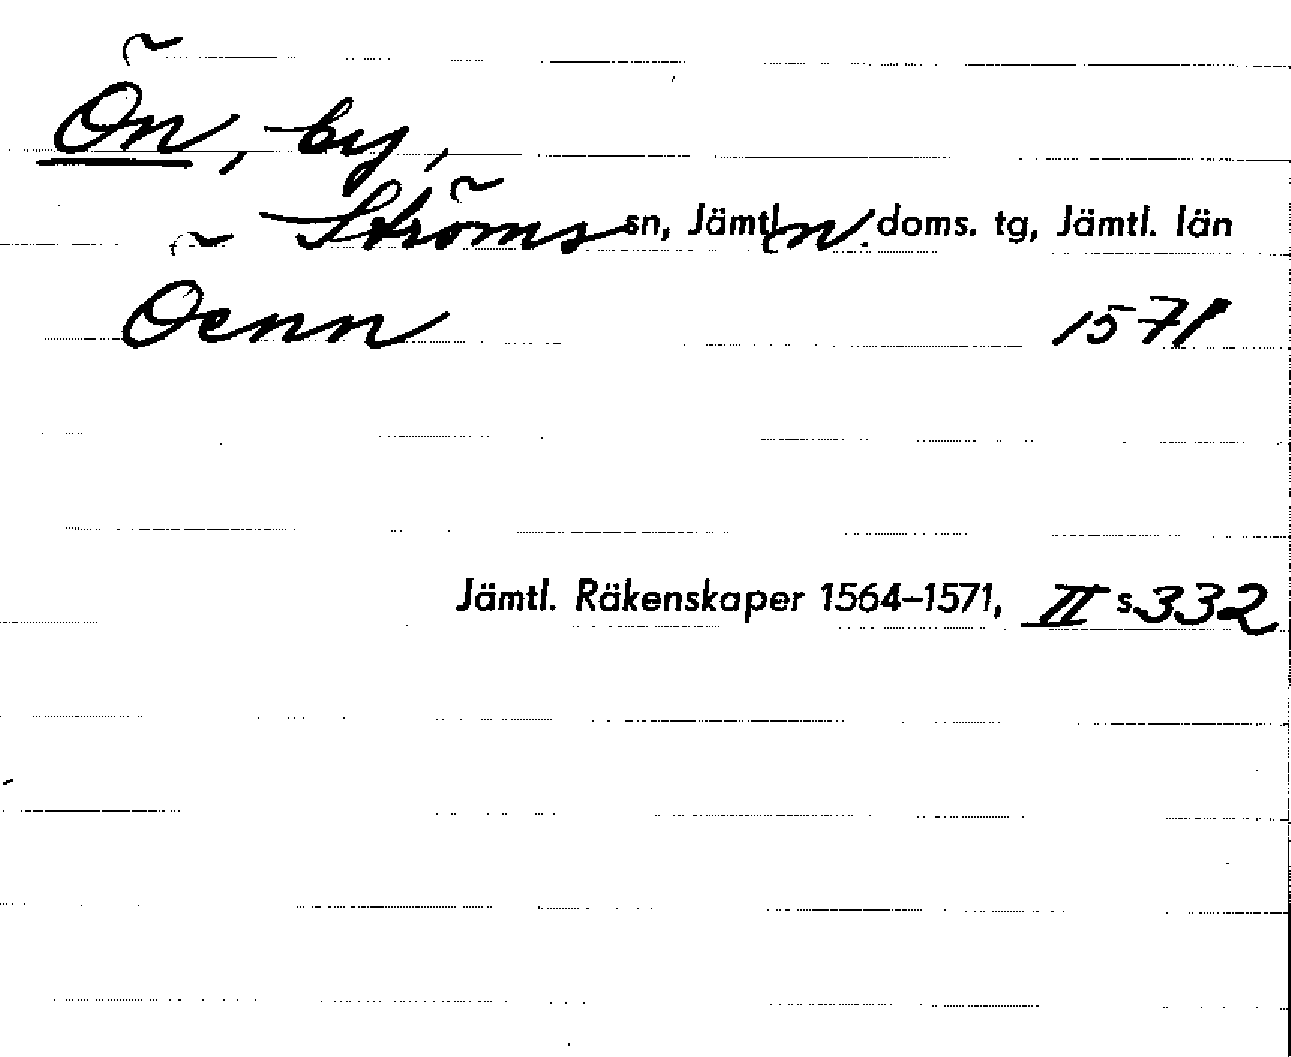 Ön, by,
Ströms sn, Jämtl. n. doms. tg, Jämtl. län
Öenn 1571
Jämtl. Räkenskaper 1564–1571, II s. 332